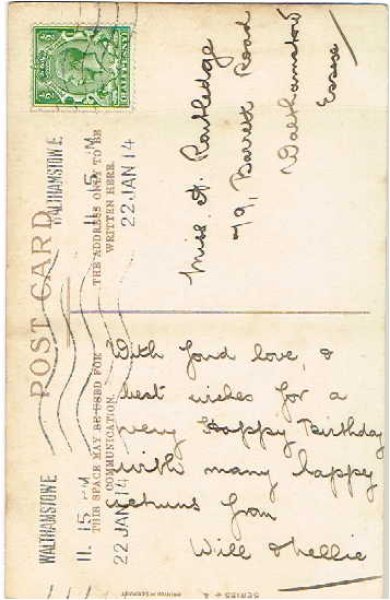 POST CARD
THIS SPACE MAY BE USED FOR
COMMUNICATION.
THE ADDRESS ONLY TO BE
WRITTEN HERE.
WALTHAMSTOW E
11. 15 PM
22 JAN 14
WALTHAMSTOW E
11. 15 PM
22 JAN 14
HALFPENNY
Miss A. Routledge
79, Barrett Road
Walthamstow
Essex
With fond love, &
best wishes for a
very Happy Birthday
with many happy
returns from
Will & Nellie
PRINTED IN GERMANY
SERIES